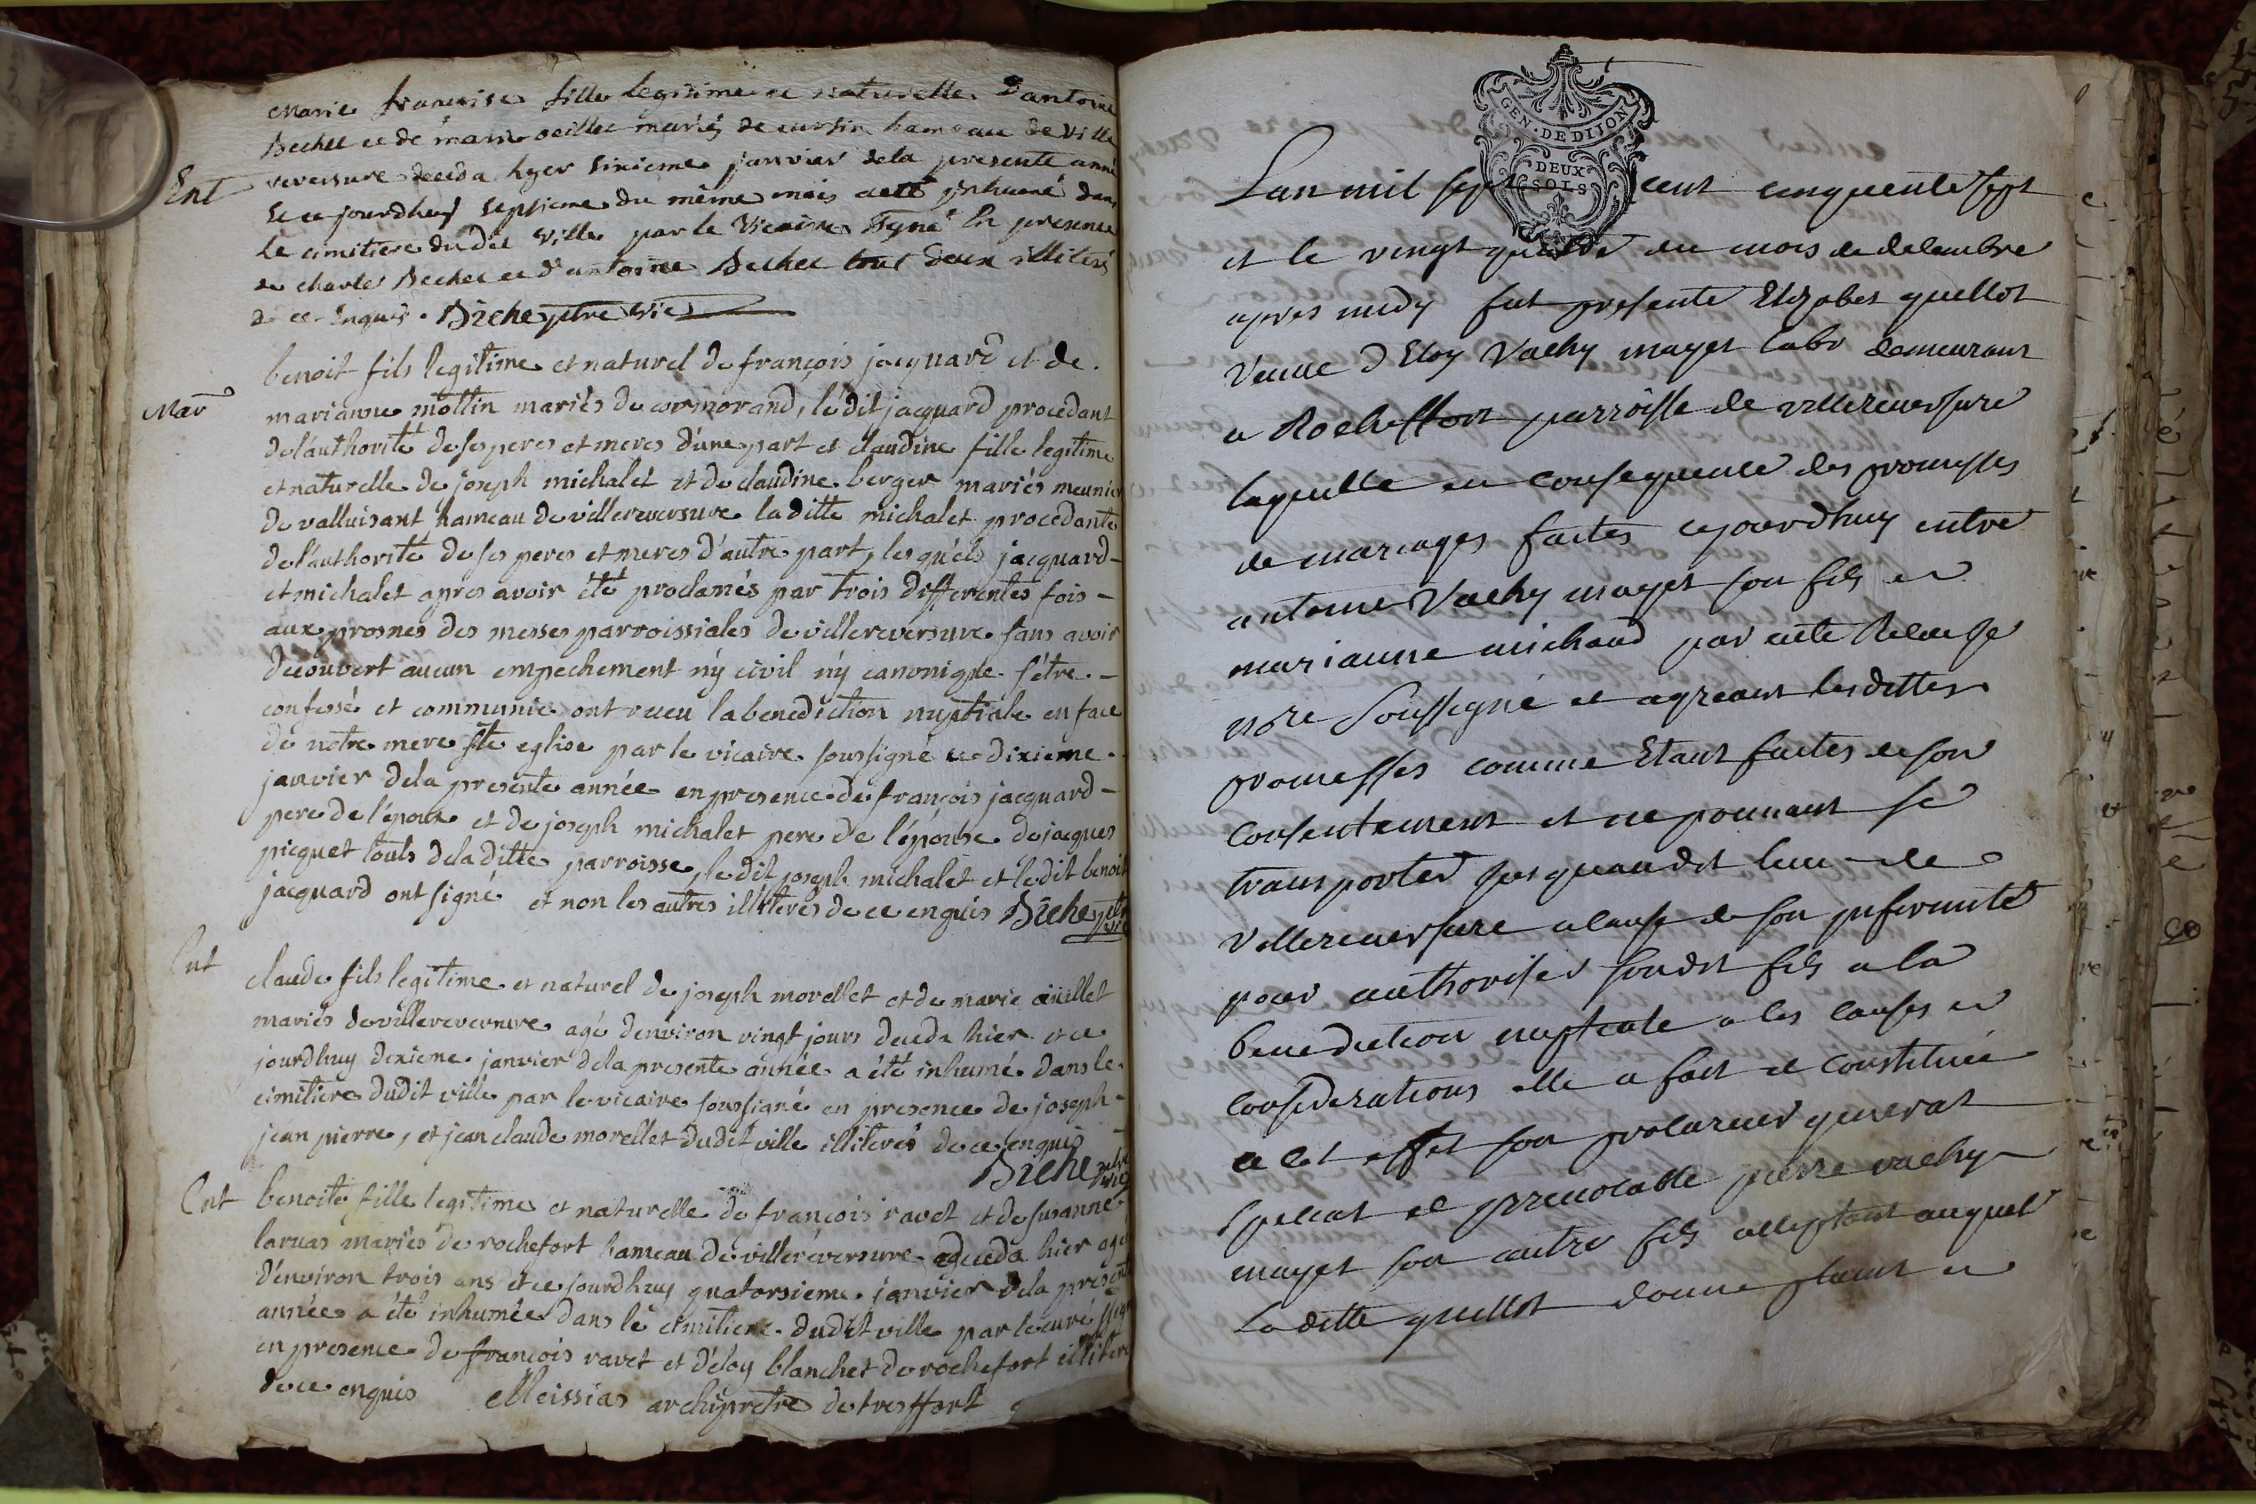 Marie francoise fille legitime et naturelle d'antoine
Bechet et de marie oeillet mariés de cursin hameau de ville
Ent
reversure deceda hyer sixieme janvier dela presente année
et ce jourdhuy septieme du même mois a eté inhumé dans
le cimitiere du dit ville par le Vicaire en presence
de charles Bechet et d'antoine Bechet tous deux illiterés
de ce enquis. Biche ptre vic
benoit fils legitime et naturel de françois jacquard et de
Mar
marianne mottin mariés de cormorand, le dit jacquard procedant
de l'authorité de ses peres et meres d'une part et claudine fille legitime
et naturelle de joseph michalet et de claudine berger mariés meunier
de valluisant hameau de villereversure la ditte michalet procedante
de l'authorité de ses peres et meres d'autre part, lesquels jacquard
et michalet apres avoir été proclamés par trois differentes fois
aux prosnes des messes parroissiales de villereversure sans avoir
decouvert aucun empechement ny civil ny canonique s'être
confessé et communié ont receu la benediction nuptiale en face
de notre mere ste eglise par le vicaire soussigné ce dixieme
janvier dela presente année en presence de françois jacquard
pere de l'époux et de joseph michalet pere de l'épouse de jacques
picquet touts dela ditte parroisse, le dit joseph michalet et le dit benoit
jacquard ont signé et non les autres illiterés de ce enquis Biche ptre vic
Ent
claude fils legitime et naturel de joseph morellet et de marie
mariés de villereversure agé denviron vingt jours deceda hier et ce
jourdhuy dixieme janvier dela presente année a été inhumé dans le
cimitiere dudit ville par le vicaire soussigné en presence de joseph
jean pierre, et jean claude morellet dudit ville illiterés de ce enquis
Biche ptre vic
Ent
benoite fille legitime et naturelle de françois ravet et de susanne
mariés de rochefort hameau de villereversure deceda hier agé
d'environ trois ans et ce jourdhuy quatorsieme janvier dela presente
année a été inhumée dans le cimitiere dudit ville par le curé
en presence de françois ravet et d'éloy blanchet de rochefort illiterés
de ce enquis Meissias archiprêtre de treffort
GEN. DE DIJON
DEUX
SOLS
Lan mil sept cent cinquente sept
et le vingt quatre du mois de decembre
apres midy fut presente Elizabet guillot
Veuve d'Eloy Vachy mayet labr demeurant
a Rocheffort parroisse de villereversure
laquelle en consequence des promesses
de mariages faites cejourdhuy entre
antoine Vachy mayet son fils et
marianne michaud par acte Receu Je
nore soussigné et agreant lesdittes
promesses comme Etant faites de son
consentement et ne pouvant se
transporter jusquaudit lieu de
villereversure a cause de son infirmité
pour authoriser sondit fils a la
benediction nuptiale a ces causes et
considerations elle a fait et constitué
a cet effet son procureur general
special et irrevocable pierre vachy
mayet son autre fils acceptant auquel
La ditte guillot donne plains et